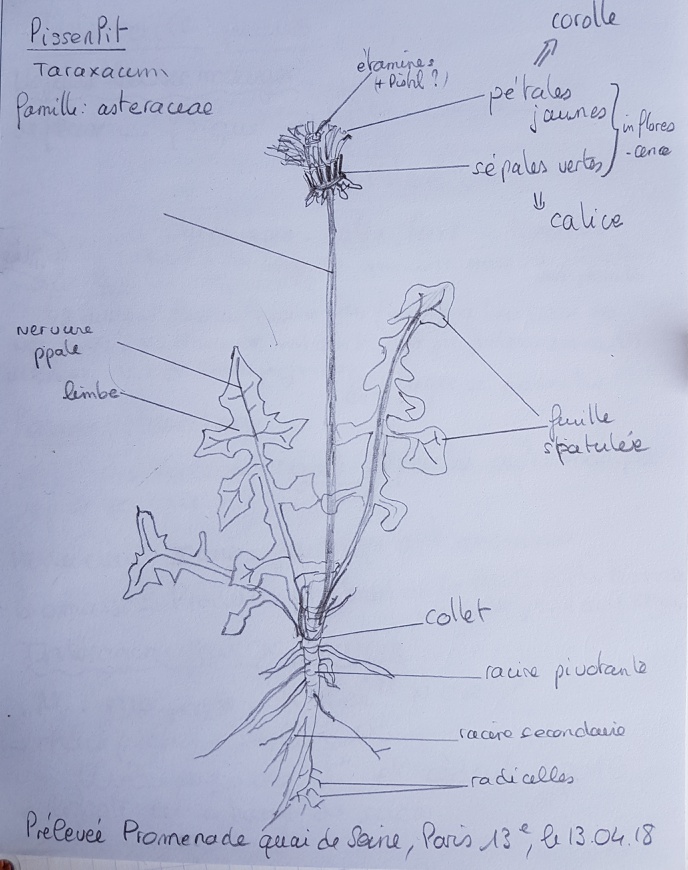 PissenPit
Taraxacum
famille: asteraceae
corolle
étamines
(+ Pistil ?)
pétales
jaunes
inflores
-cence
sépales vertes
calice
nervure
ppale
limbe
feuille
spatulée
collet
racine pivotante
racine secondaire
radicelles
Prélevée Promenade quai de Seine, Paris 13e, le 13.04.18